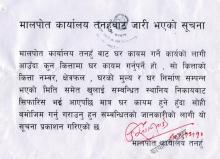 मालपोत कार्यालय तनहुँबाट जारी भएको सूचना
मालपोत कार्यालय तनहुँ बाट घर कायम गर्ने कार्यको लागी
आउँदा कुन कित्तामा घर कायम गर्नुपर्ने हो , सो कित्ताको
कित्ता नम्बर, क्षेत्रफल , घरको मुल्य र घर निर्माण सम्पन्न
भएको मिति समेत खुलाई सम्बन्धित स्थानिय निकायबाट
सिफारिस भई आएपछि मात्र घर कायम हुने हुँदा सोही
बमोजिम गर्नु गराउनु हुन सम्बन्धितको जानकारीको लागी यो
सूचना प्रकाशन गरिएको छ .
मालपोत कार्यालय तनहुँ